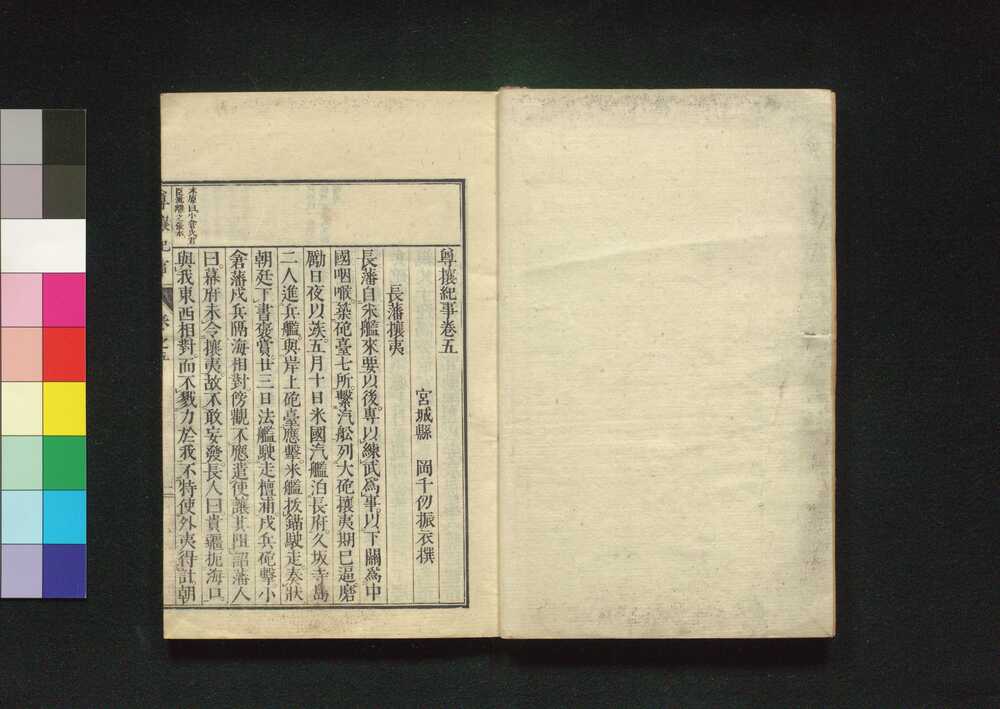 尊攘紀事卷五
宮城縣 岡千仞振衣撰
長藩攘夷
長藩自米艦來要以後。專以練武爲事。以下關爲中
國咽喉。築砲臺七所。繫汽舩列大砲攘夷期已逼。磨
勵日夜以竢。五月十日米國汽艦泊長府久坂寺島
二人進兵艦與岸上砲臺應擊米艦拔錨駛走奏狀
朝廷下書褒賞廿三日法艦駛走檀浦戍兵砲擊小
倉藩戍兵隔海相對傍觀不應遣使讓其阻詔藩人
曰。幕府未令攘夷故不敢妄發長人曰貴疆扼海口
與我東西相對而不戮力於我不特使外夷得計朝
米原曰小倉氏君
臣
之張本
尊攘紀事
卷之五